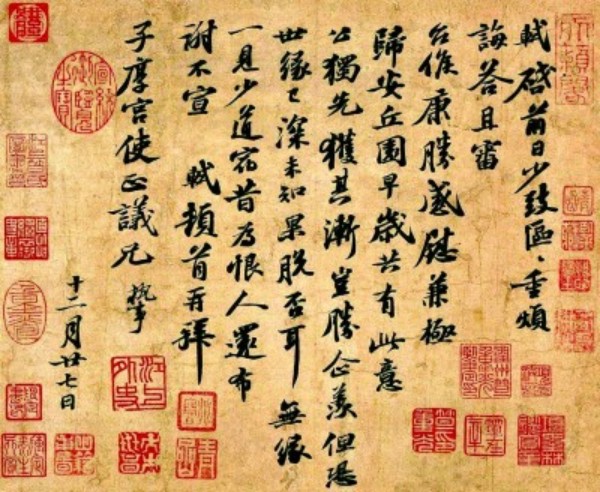 軾啓前日少致區、重煩
誨答且審
台候康勝感慰兼極
歸安丘園早歲共有此意
公獨先獲其漸豈勝企羨但恐
世緣已深未知果脫否耳無緣
一見少道宿昔為恨人還布
謝不宣 軾頓首再拜
子厚宮使正議兄 執事
十二月廿七日
江上外史